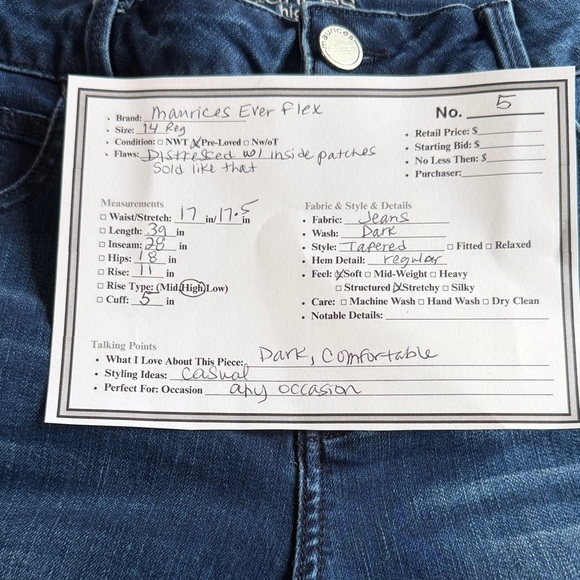 maurices
Brand: Maurices Ever Flex
No. 5
Size: 14 Reg
Condition: □ NWT ☒ Pre-Loved □ Nw/oT
Flaws: Distressed w/ inside patches
Sold like that
Retail Price: $
Starting Bid: $
No Less Then: $
Purchaser:
Measurements
□ Waist/Stretch: 17 in/17.5 in
□ Length: 39 in
□ Inseam: 28 in
□ Hips: 18 in
□ Rise: 11 in
□ Rise Type: (Mid/High/Low)
□ Cuff: 5 in
Fabric & Style & Details
Fabric: Jeans
Wash: Dark
Style: Tapered □ Fitted □ Relaxed
Hem Detail: regular
Feel: ☒ Soft □ Mid-Weight □ Heavy
□ Structured ☒ Stretchy □ Silky
Care: □ Machine Wash □ Hand Wash □ Dry Clean
Notable Details:
Talking Points
What I Love About This Piece: Dark, Comfortable
Styling Ideas: casual
Perfect For: Occasion any occasion